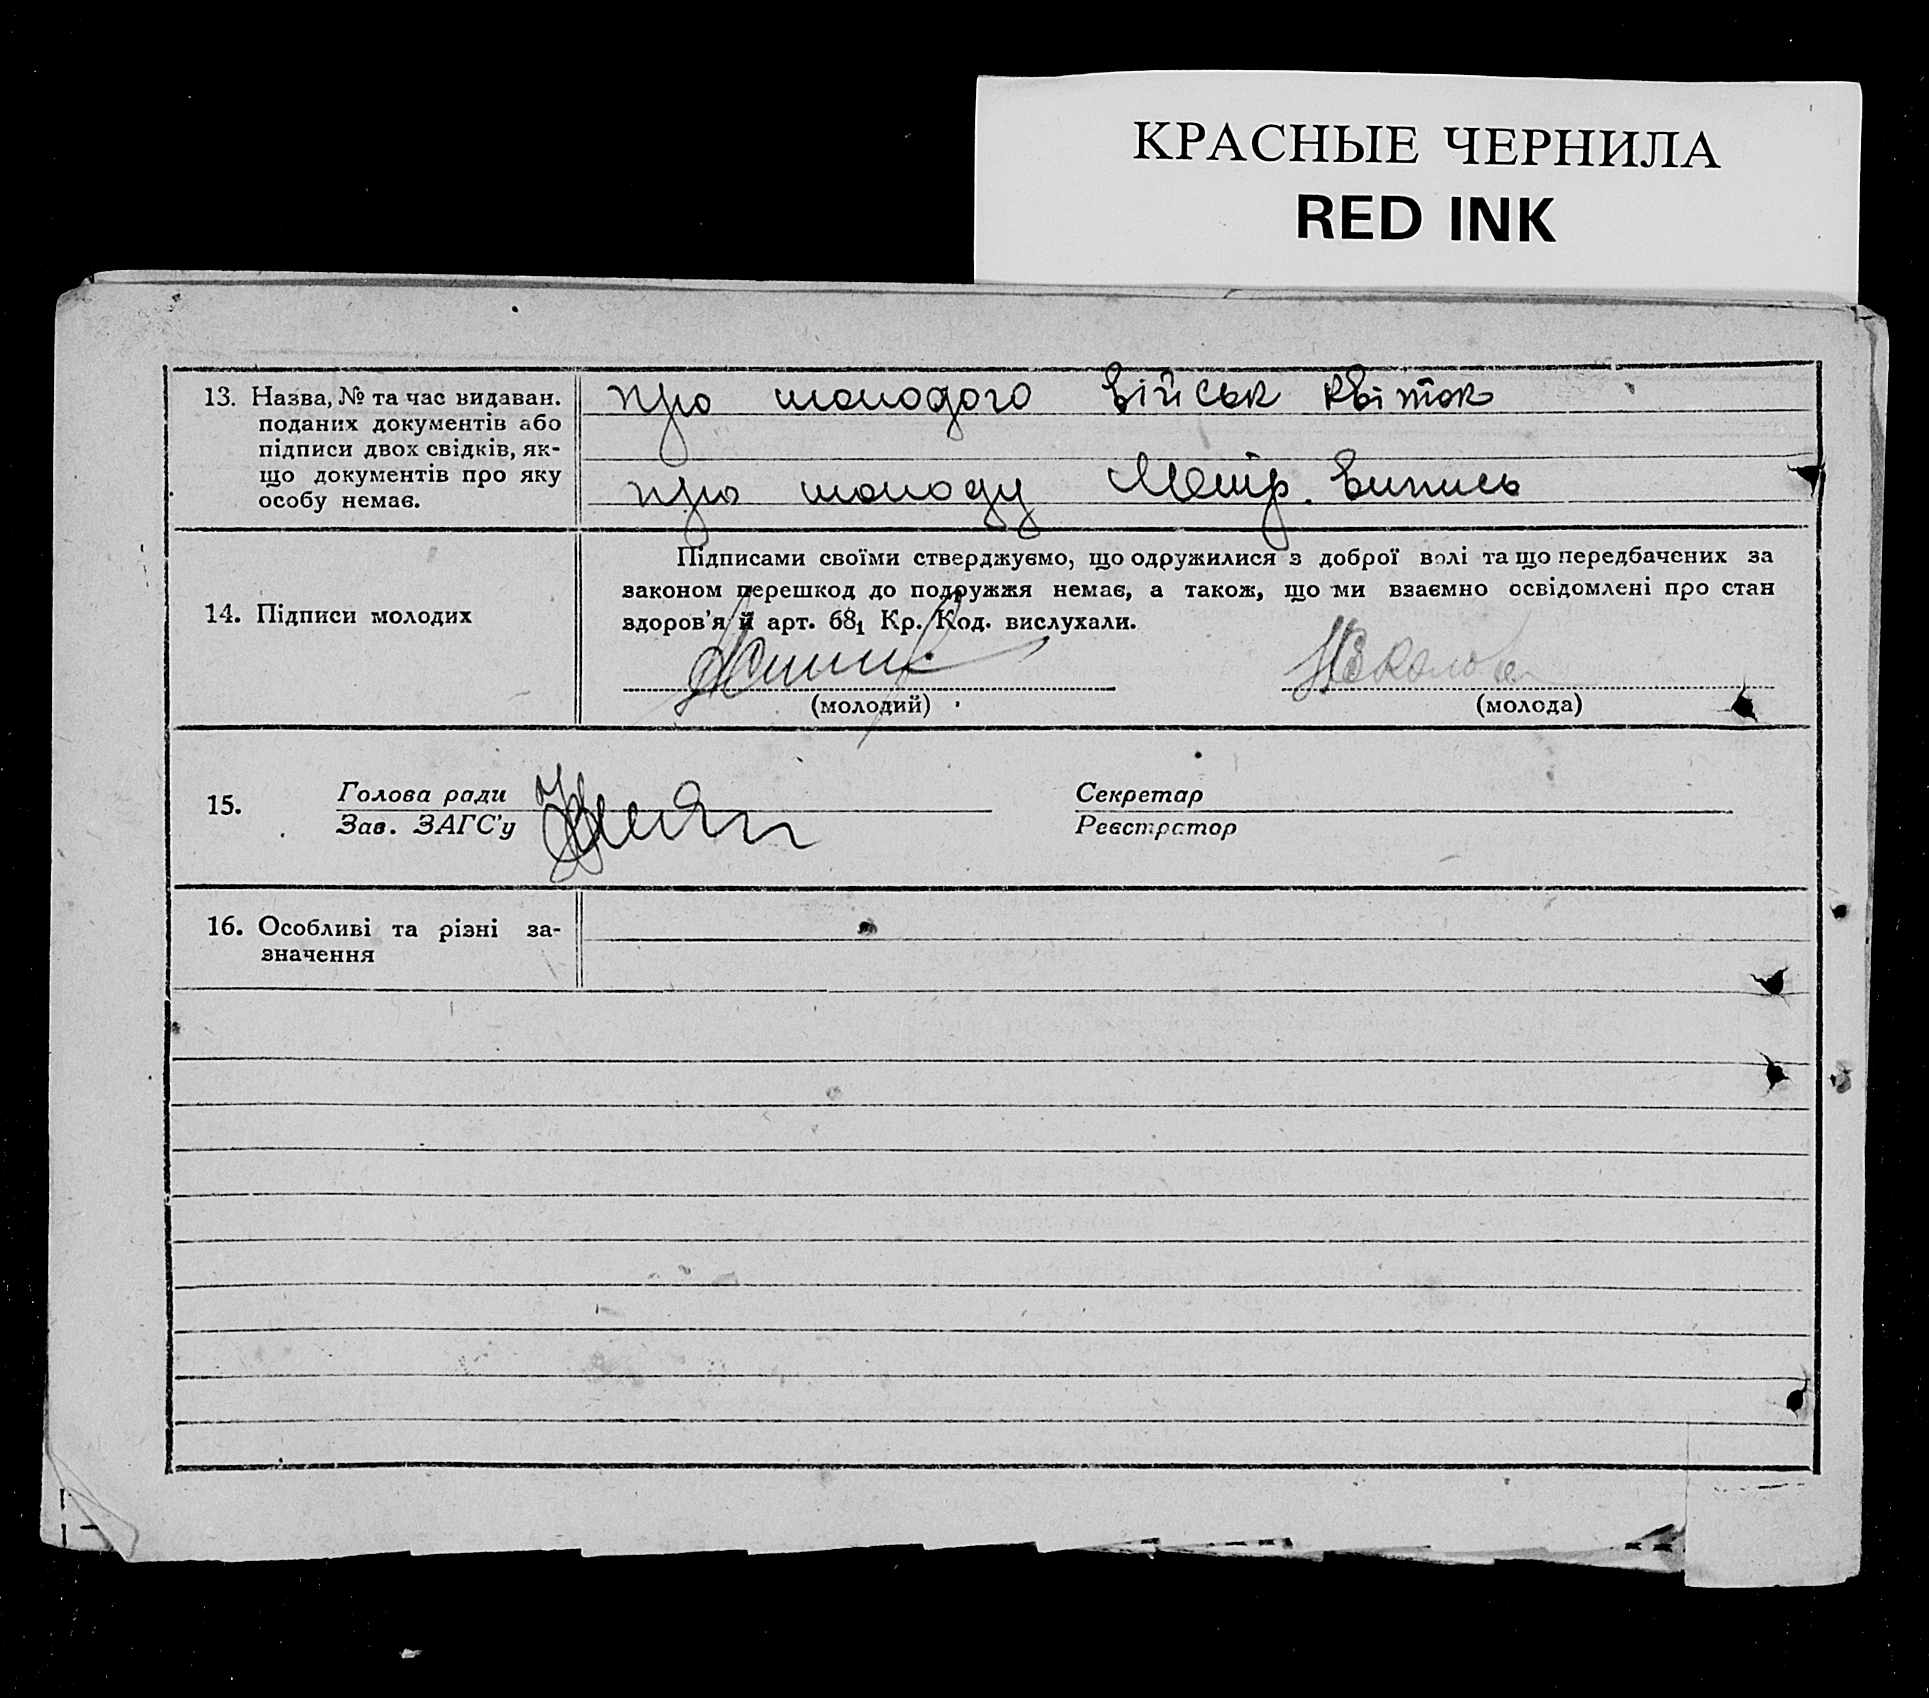 КРАСНЫЕ ЧЕРНИЛА
RED INK
13. Назва, № та час видаван.
поданих документів або
підписи двох свідків, як-
що документів про яку
особу немає.
про молодого військ квіток
про молоду Метр. випись
14. Підписи молодих
Підписами своїми стверджуємо, що одружилися з доброї волі та що передбачених за
законом перешкод до подружжя немає, а також, що ми взаємно освідомлені про стан
здоров'я й арт. 68₁ Кр. Код. вислухали.
(молодий)
(молода)
15.
Голова ради
Зав. ЗАГС'у
Секретар
Реєстратор
16. Особливі та різні за-
значення